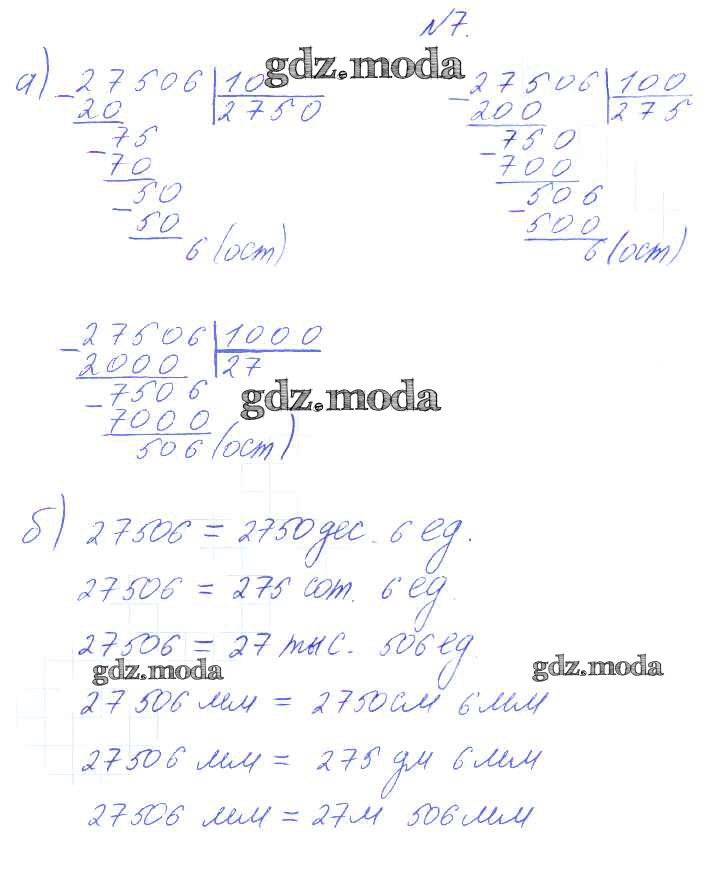 №7.
gdz.moda
а) - 27506 | 10    - 27506 | 100
20 2750    200 275
75    750
- 70    - 700
50    506
- 50    - 500
6 (ост)    6 (ост)
- 27506 | 1000
2000 27
- 7506
gdz.moda
7000
506 (ост)
б) 27506 = 2750 дес. 6 ед.
27506 = 275 сот. 6 ед.
27506 = 27 тыс. 506 ед.
gdz.moda gdz.moda
27506 мм = 2750 см 6 мм
27506 мм = 275 дм 6 мм
27506 мм = 27 м 506 мм